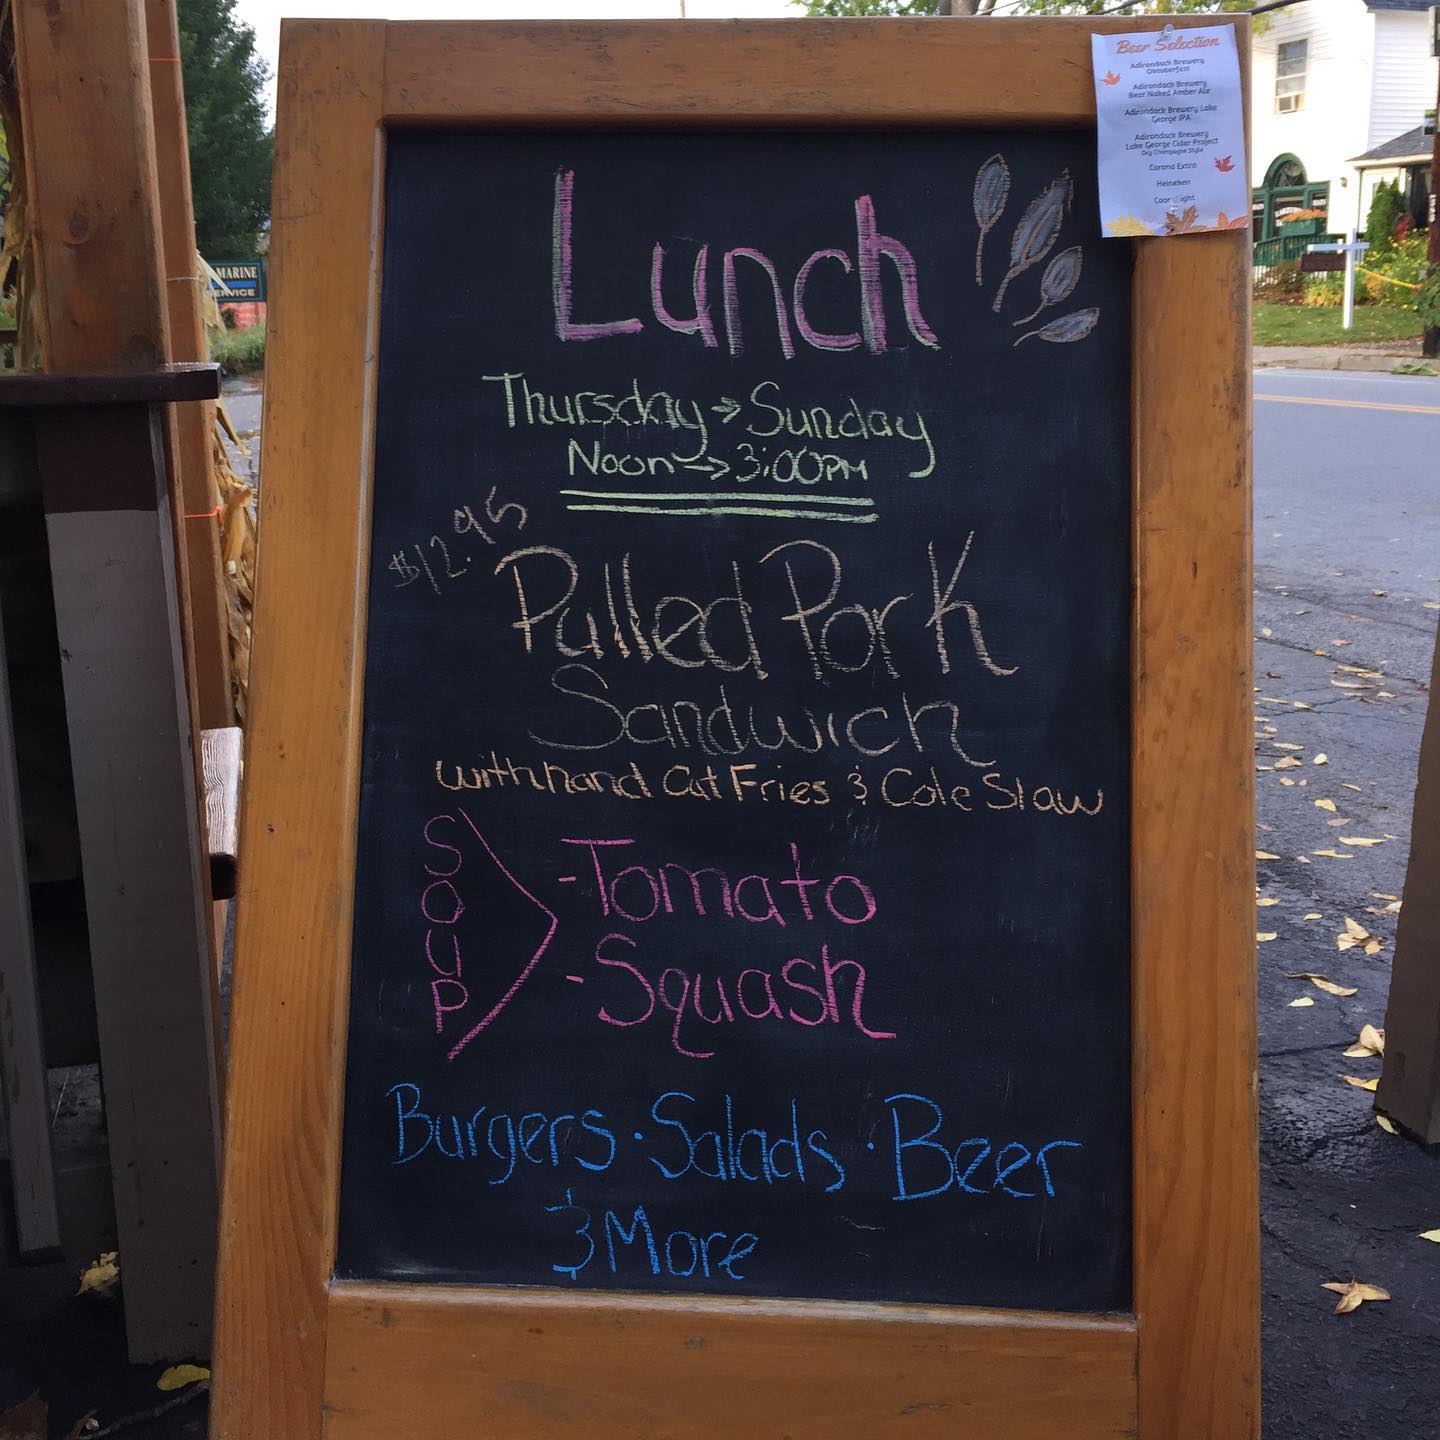 Beer Selection
Adirondack Brewery
Oktoberfest
Adirondack Brewery
Bear Naked Amber Ale
Adirondack Brewery Lake
George IPA
Adirondack Brewery
Lake George Cider Project
Dry Champagne Style
Corona Extra
Heineken
Coors Light
MARINE
SERVICE
Lunch
Thursday → Sunday
Noon → 3:00PM
$12.95
Pulled Pork
Sandwich
with hand Cut Fries & Cole Slaw
SOUP
-Tomato
-Squash
Burgers · Salads · Beer
& More